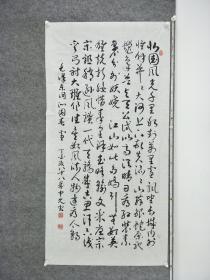 北国风光千里冰封万里雪飘望长城内外
惟余莽莽大河上下顿失滔滔山舞银蛇原驰蜡
象欲与天公试比高须晴日看红装素
裹分外妖娆江山如此多娇引无数英
雄竞折腰惜秦皇汉武略输文采唐
宗宋祖稍逊风骚一代天骄成吉思汗只识
弯弓射大雕俱往矣数风流人物还看今朝
毛泽东词沁园春雪